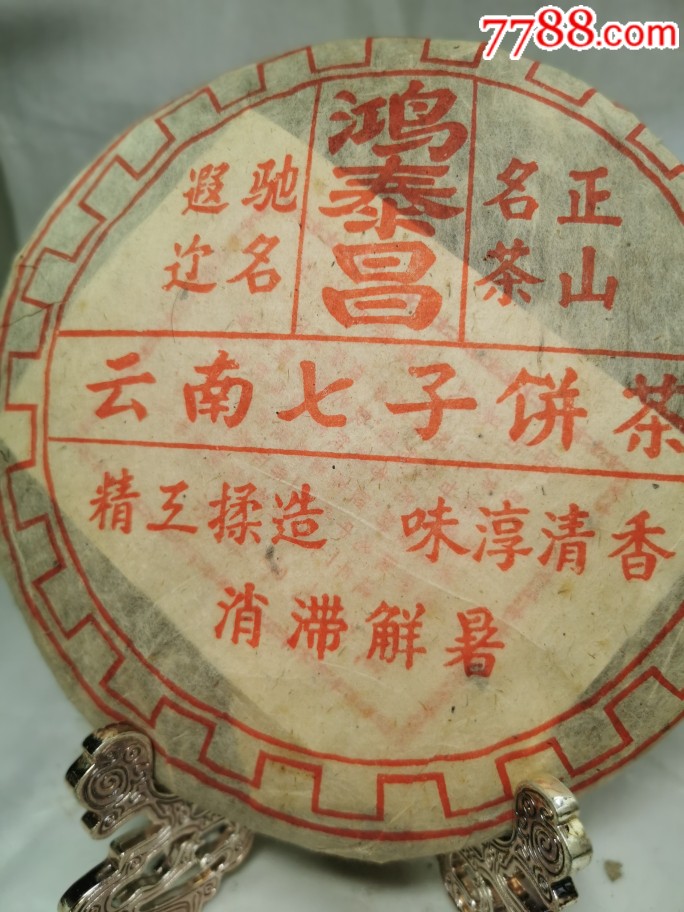 7788.com
正山
名茶
鸿泰昌
驰名
遐迩
云南七子饼茶
精工揉造 味淳清香
消滞解暑